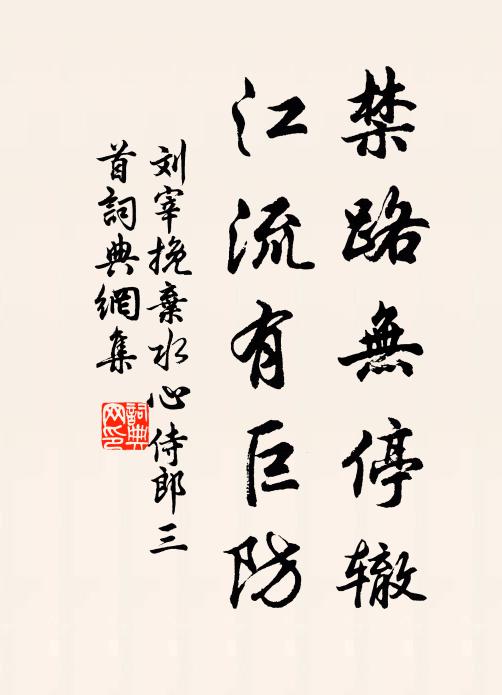 禁路無停辙
江流有巨防
刘宰挽棄水心侍郎三
首詞典網集
詞典网印